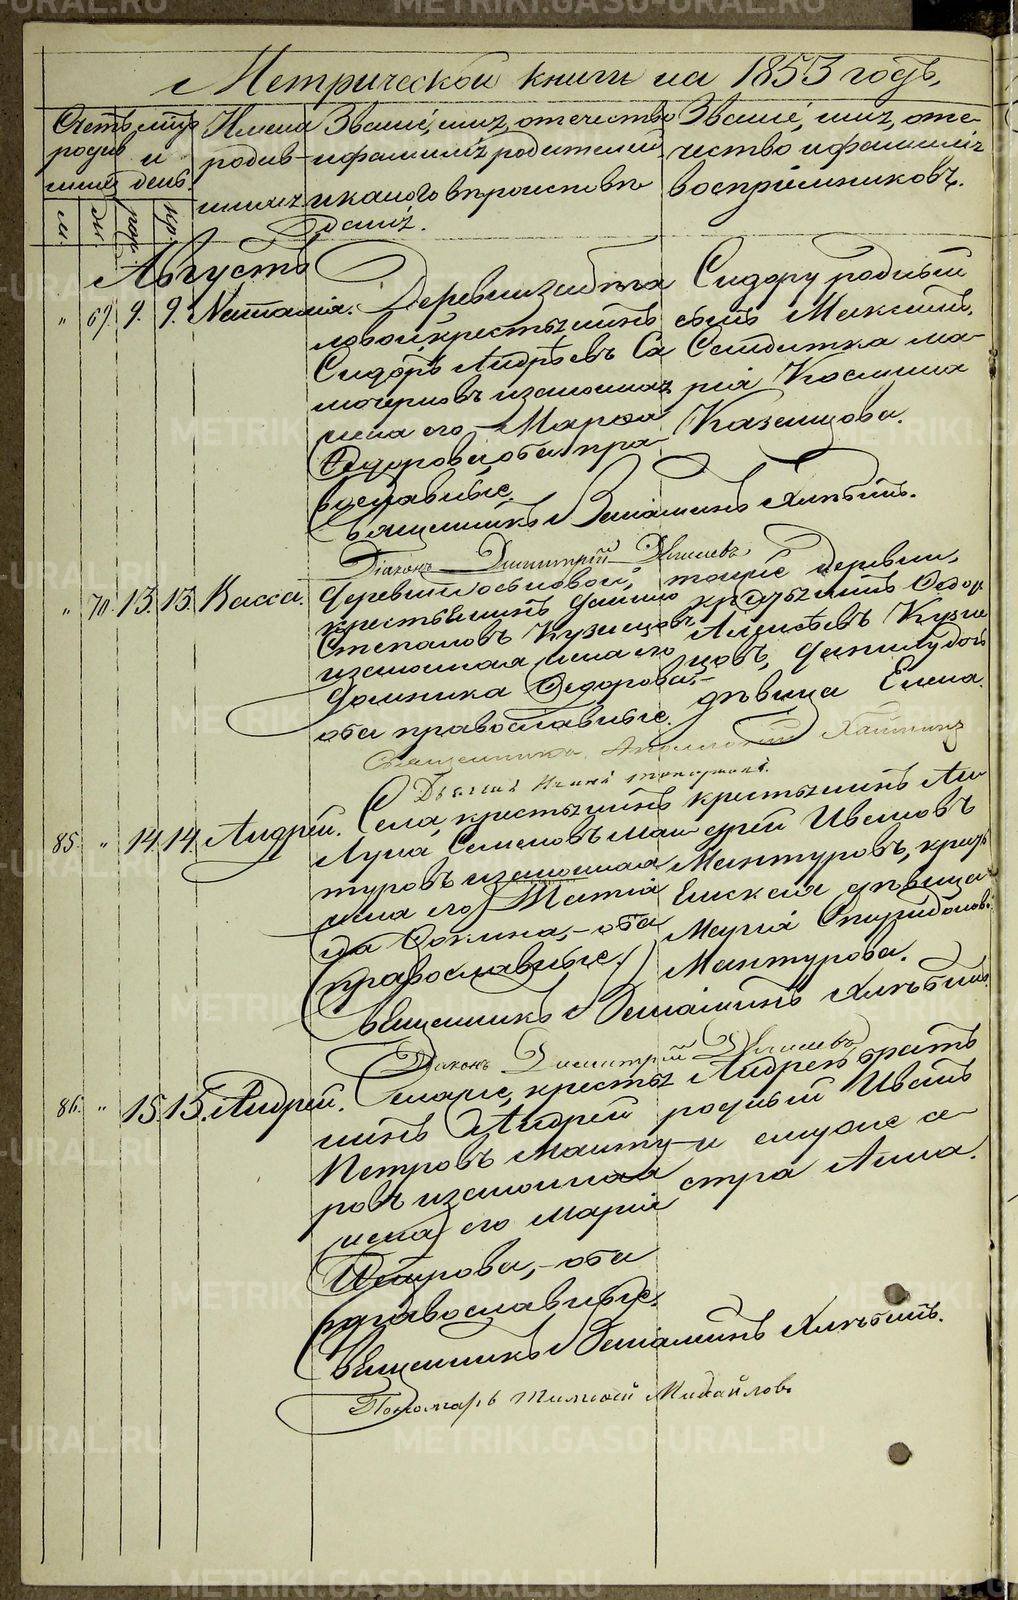 Метрической книги на 1853 годъ,
Счетъ родив
шихся
мѣс: и день.
м. ж. род. кр.
Имена родив-
шихся
Званіе, имя, отечество
и фамилія родителей
и какого вѣроисповѣ
данія.
Званіе, имя, оте-
чество и фамилія
воспріемниковъ.
Августъ
" 69. 9. 9. Наталія.
Деревни
ловой крестьянинъ
Сидоръ Андрѣевъ Са
мочерновъ изаконная
жена его Марѳа
Ѳедорова, оба пра-
вославные.
Сидору родный
сынъ Максимъ,
Солдатка Ма-
рія Космина
Казанцова.
Священникъ Веніаминъ Хлѣбинъ.
Діаконъ Димитрій
" 70 13. 13. Васса.
Деревни Осыновой,
крестьянинъ Данило
Степановъ Кузнецовъ
изаконная жена его
Домника Ѳедорова,-
оба православные.
тойже деревни,
крестьянинъ Ѳедор
Алексѣевъ Кузне
цовъ, Данилу дочь
дѣвица Елена.
Священникъ Аполлоній
85. " 14. 14. Андрей.
Села, крестьянинъ
Лука Семеновъ Ман
туровъ изаконная
жена его Матіа
на Фокина,- оба
православные.
крестьянинъ Ан
дрей Ивановъ
Мантуровъ, крест
ьянская дѣвица
Марія Спиридонов:
Мантурова.
Священникъ Веніаминъ Хлѣбинъ
Діаконъ Димитрій
86. " 15. 15. Андрей.
Тамже, крестья
нинъ Андрей
Петровъ Манту-
ровъ изаконная
жена его Марія
Петрова,- оба
православные.
Андрею братъ
родный Иванъ
и емуже се-
стра Анна.
Священникъ Веніаминъ Хлѣбинъ.
Пономарь Тимофей Михайловъ
METRIKI.GASO-URAL.RU